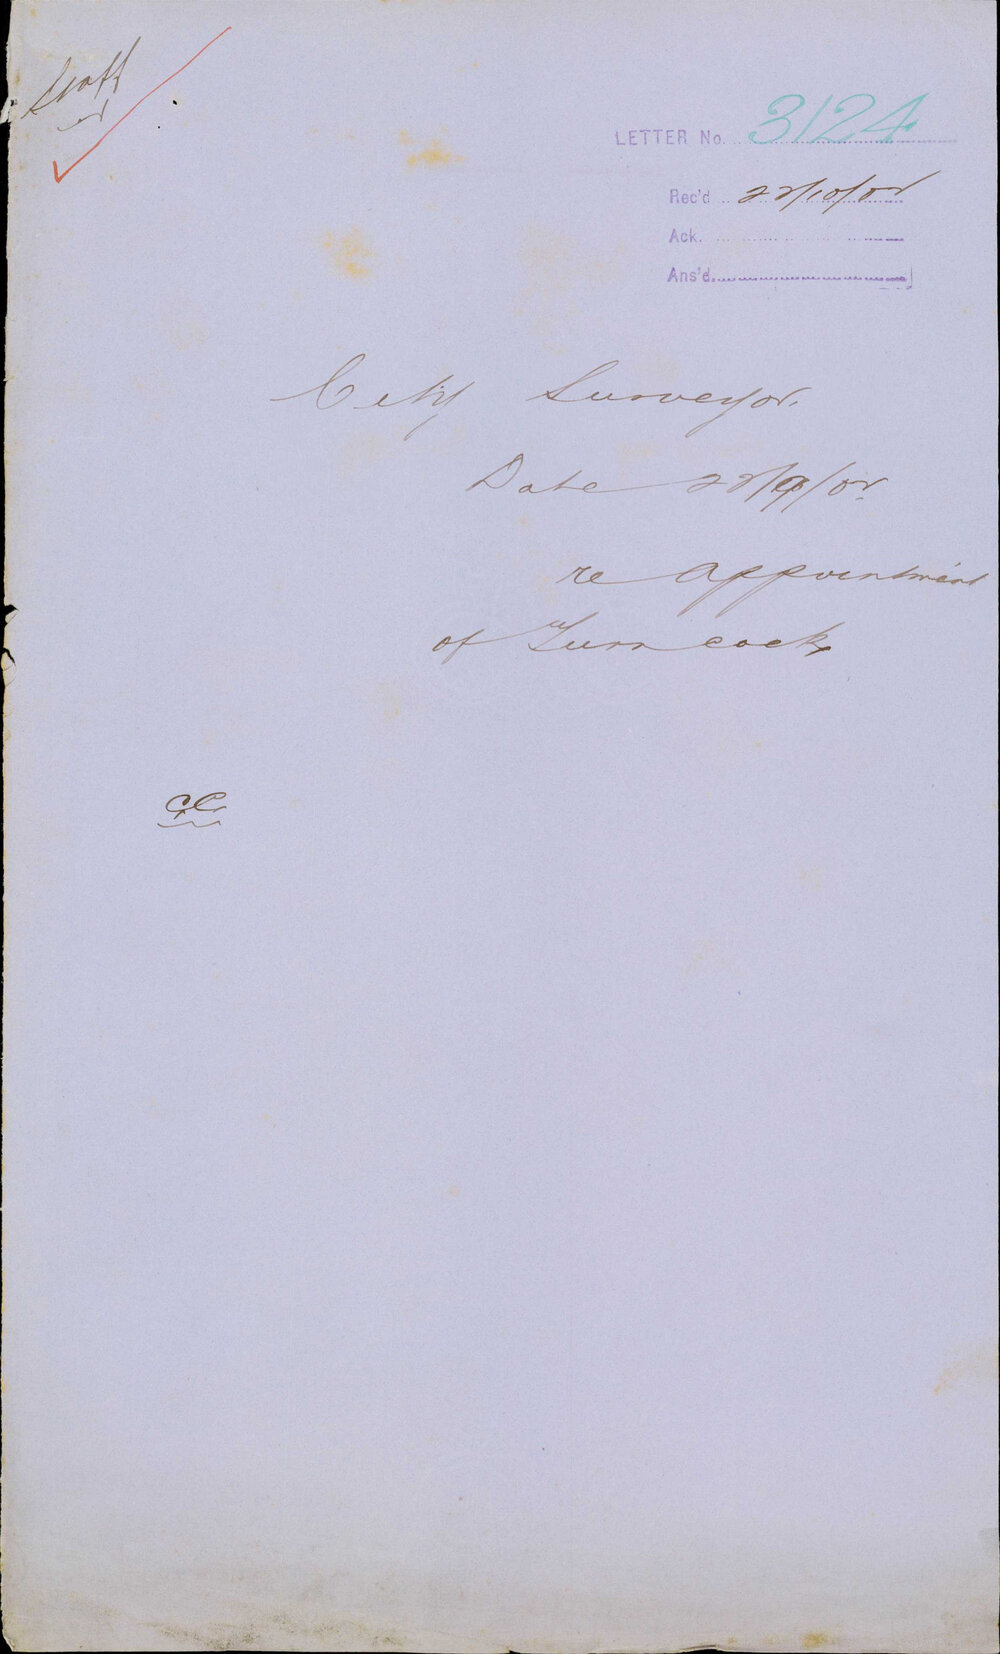 Staff
LETTER No. 3124
Rec'd 22/10/02
Ack.
Ans'd.
City Surveyor.
Date 22/9/02.
re appointment
of Turncock